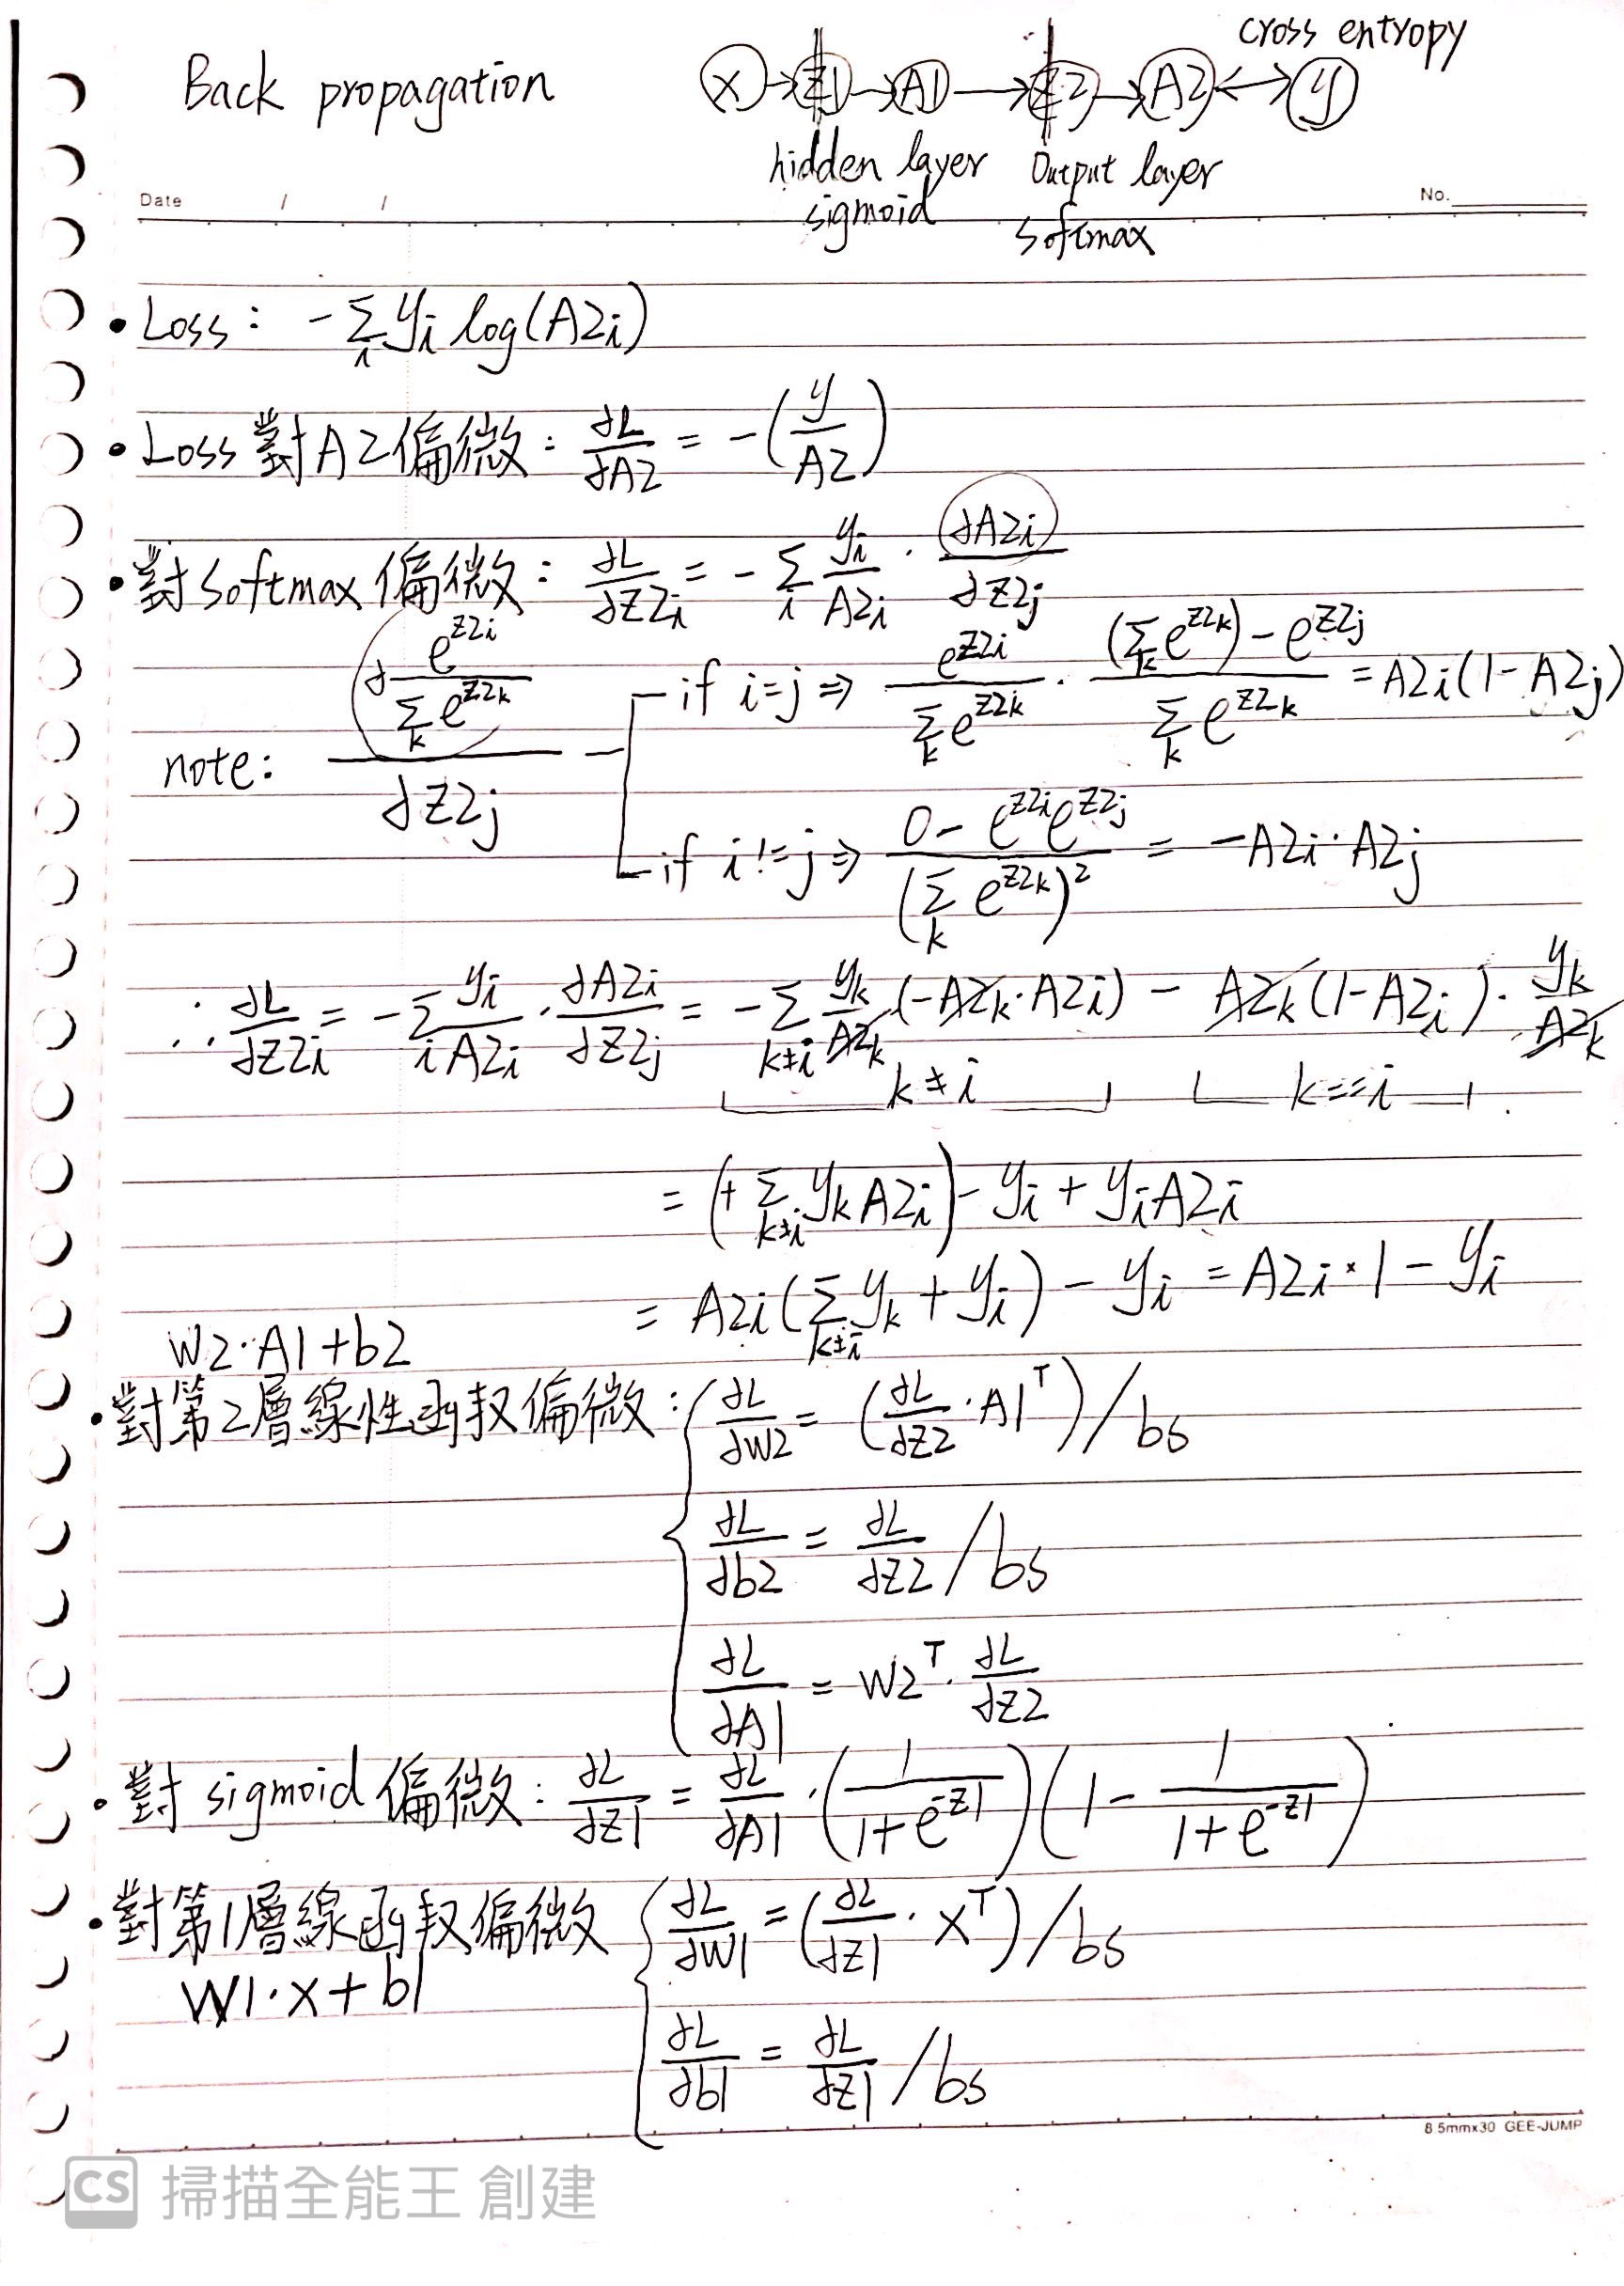 cross entropy
Back propagation X → Z1 → A1 → Z2 → A2 ↔ y
hidden layer Output layer
sigmoid softmax
Date / / No.
• Loss: -∑_i y_i log(A2_i)
• Loss對A2偏微: ∂L/∂A2 = -(y/A2)
• 對softmax偏微: ∂L/∂Z2_i = -∑_i y_i/A2_i · ∂A2_i/∂Z2_j
note: ∂(e^{Z2_i}/∑_k e^{Z2_k})/∂Z2_j
if i=j ⇒ e^{Z2_i}/∑_k e^{Z2_k} · ((∑_k e^{Z2_k}) - e^{Z2_j})/∑_k e^{Z2_k} = A2_i(1-A2_j)
if i!=j ⇒ (0 - e^{Z2_i}e^{Z2_j})/(∑_k e^{Z2_k})^2 = -A2_i·A2_j
∴ ∂L/∂Z2_i = -∑_i y_i/A2_i · ∂A2_i/∂Z2_j = -∑_{k≠i} y_k/A2_k (-A2_k·A2_i) - A2_k(1-A2_i)·y_k/A2_k
k≠i k==i
= (+∑_{k≠i} y_k A2_i) - y_i + y_i A2_i
= A2_i(∑_{k≠i} y_k + y_i) - y_i = A2_i × 1 - y_i
W2·A1+b2
• 對第2層線性函权偏微: ∂L/∂W2 = (∂L/∂Z2 · A1^T)/bs
∂L/∂b2 = ∂L/∂Z2 /bs
∂L/∂A1 = W2^T · ∂L/∂Z2
• 對sigmoid偏微: ∂L/∂Z1 = ∂L/∂A1 · (1/(1+e^{-Z1}))(1 - 1/(1+e^{-Z1}))
• 對第1層線函权偏微 ∂L/∂W1 = (∂L/∂Z1 · X^T)/bs
W1·X+b1
∂L/∂b1 = ∂L/∂Z1 /bs
8.5mmx30 GEE-JUMP
CS 掃描全能王 創建